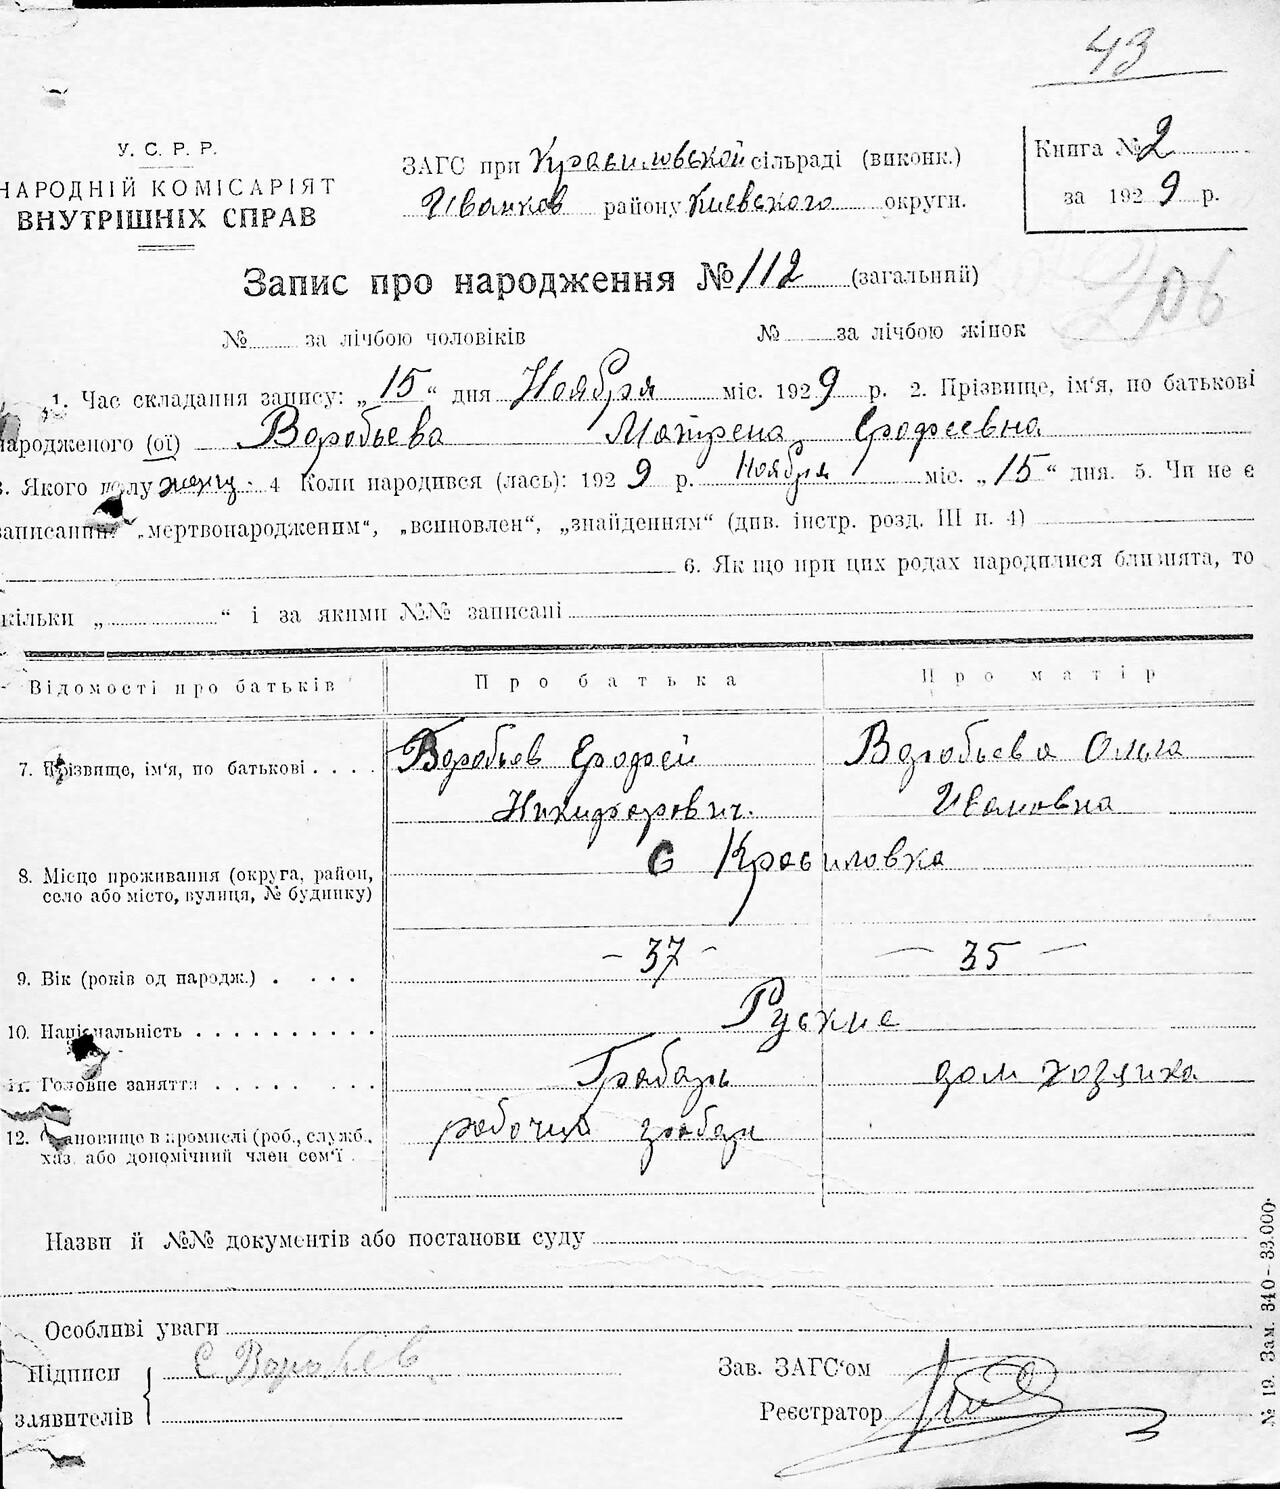 43
У. С. Р. Р.
НАРОДНІЙ КОМІСАРІЯТ
ВНУТРІШНІХ СПРАВ
ЗАГС при Красиловской сільраді (виконк.)
Иванков району Киевского округи.
Книга № 2
за 1929 р.
Запис про народження № 112 (загальний)
206
№ за лічбою чоловіків № за лічбою жінок
1. Час складання запису: „15“ дня Ноября міс. 1929 р. 2. Прізвище, ім'я, по батькові
народженого (ої) Воробьева Матрена Ерофеевна
3. Якого полу женщ. 4 Коли народився (лась): 1929 р. Ноября міс. „15“ дня. 5. Чи не є
записаним „мертвонародженим“, „всиновлен“, „знайденням“ (див. інстр. розд. III п. 4)
6. Як що при цих родах народилися близнята, то
кільки „ “ і за якими №№ записані
Відомості про батьків Про батька Про матір
7. Прізвище, ім'я, по батькові . . . . Воробьев Ерофей Воробьева Ольга
Никифорович. Ивановна
8. Місце проживання (округа, район, село або місто, вулиця, № будинку) С Красиловка
9. Вік (років од народж.) . . . . - 37 - - 35 -
10. Національність . . . . . . . . . . Руские
11. Головне заняття . . . . . . . . Грабарь дом хозяика
12. Становище в промислі (роб., служб., рабочий грабар
хаз. або допомічний член сем'ї .
Назви й №№ документів або постанови суду
Особливі уваги
Підписи Е Воробьев Зав. ЗАГС'ом
заявителів Реєстратор
№ 19. Зам. 340 - 33.000.